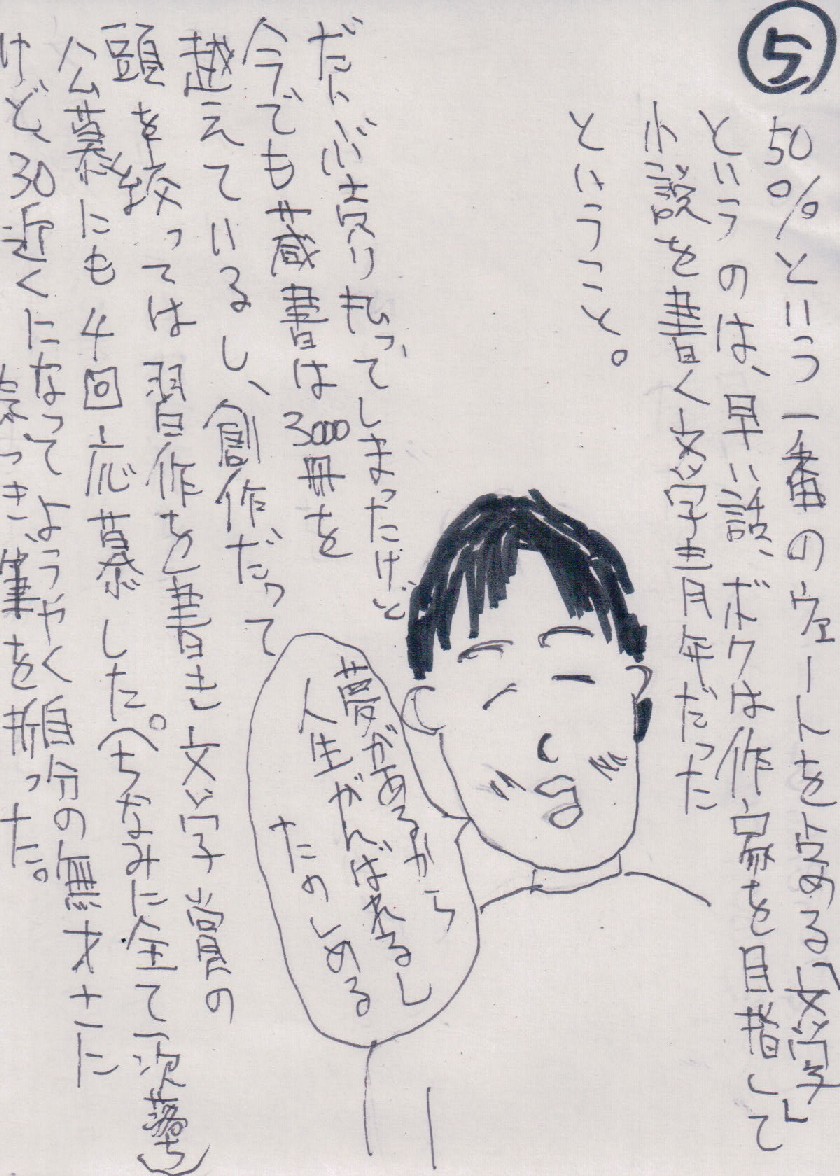 ⑤
50%という一番のウェートを占める「文学」
というのは、早い話、ボクは作家を目指して
小説を書く文学青年だった
ということ。
夢があるから
人生がんばれるし
たのしめる
だいぶ売り払ってしまったけど
今でも蔵書は3000冊を
越えているし、創作だって
頭を絞っては習作を書き文学賞の
公募にも4回応募した。(ちなみに全て一次落ち)
けど、30近くになってようやく自分の無才さに
気づき、筆を折った。